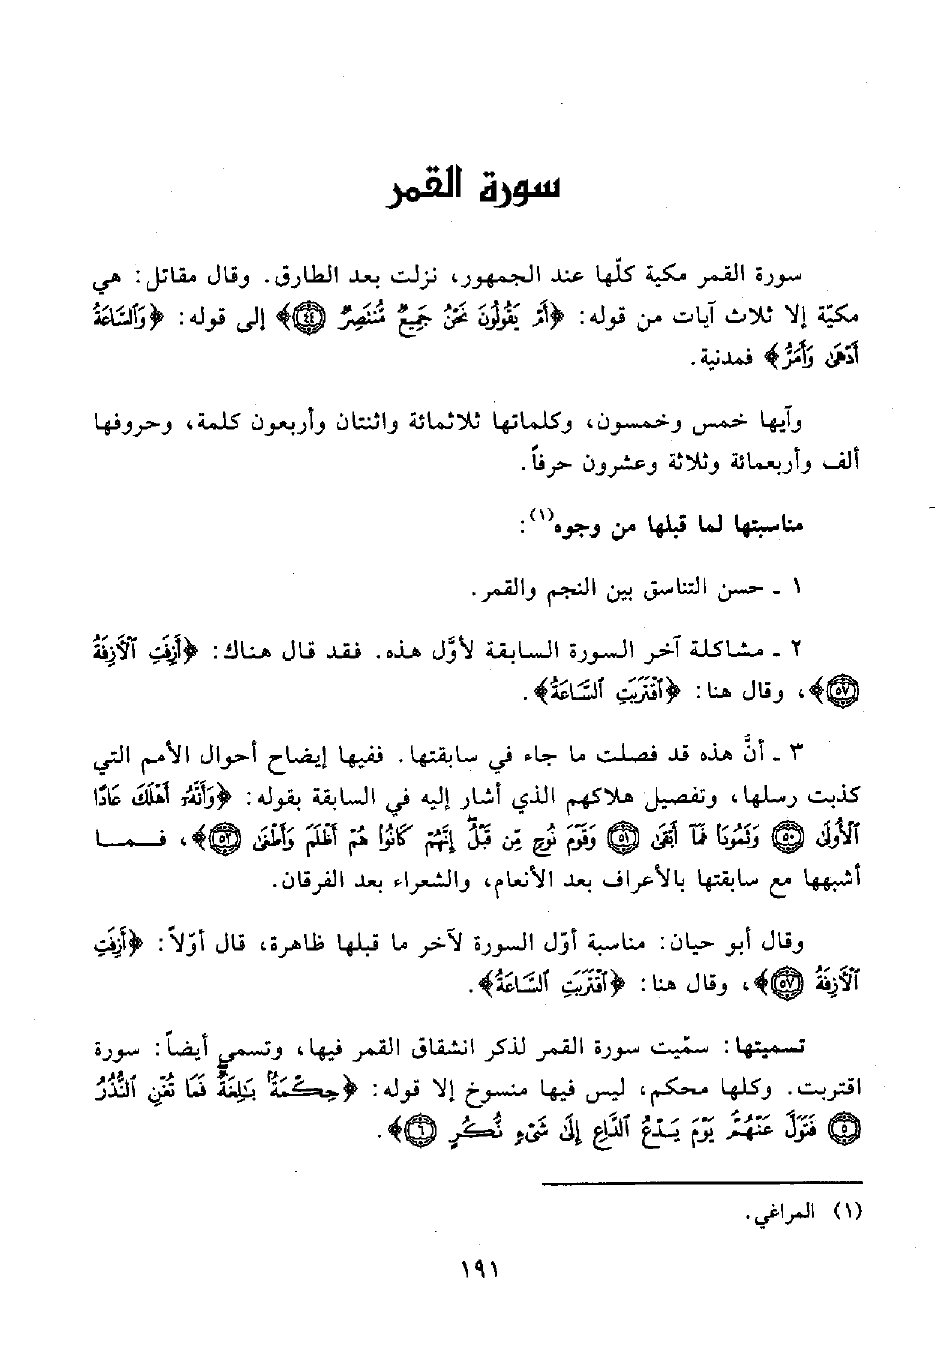 سورة القمر
سورة القمر مكية كلّها عند الجمهور، نزلت بعد الطارق. وقال مقاتل: هي
مكيّة إلا ثلاث آيات من قوله: ﴿أَمْ يَقُولُونَ نَحْنُ جَمِيعٌ مُّنتَصِرٌ ٤٤﴾ إلى قوله: ﴿وَٱلسَّاعَةُ
أَدْهَىٰ وَأَمَرُّ﴾ فمدنية.
وآيها خمس وخمسون، وكلماتها ثلاثمائة واثنتان وأربعون كلمة، وحروفها
ألف وأربعمائة وثلاثة وعشرون حرفاً.
مناسبتها لما قبلها من وجوه(١):
١ ـ حسن التناسق بين النجم والقمر.
٢ ـ مشاكلة آخر السورة السابقة لأوَّل هذه. فقد قال هناك: ﴿أَزِفَتِ ٱلْآزِفَةُ
٥٧﴾، وقال هنا: ﴿ٱقْتَرَبَتِ ٱلسَّاعَةُ﴾.
٣ ـ أنَّ هذه قد فصلت ما جاء في سابقتها. ففيها إيضاح أحوال الأمم التي
كذبت رسلها، وتفصيل هلاكهم الذي أشار إليه في السابقة بقوله: ﴿وَأَنَّهُۥٓ أَهْلَكَ عَادًا
ٱلْأُولَىٰ ٥٠ وَثَمُودَا۟ فَمَآ أَبْقَىٰ ٥١ وَقَوْمَ نُوحٍ مِّن قَبْلُ إِنَّهُمْ كَانُوا۟ هُمْ أَظْلَمَ وَأَطْغَىٰ ٥٢﴾، فــمــا
أشبهها مع سابقتها بالأعراف بعد الأنعام، والشعراء بعد الفرقان.
وقال أبو حيان: مناسبة أوّل السورة لآخر ما قبلها ظاهرة، قال أوّلاً: ﴿أَزِفَتِ
ٱلْآزِفَةُ ٥٧﴾، وقال هنا: ﴿ٱقْتَرَبَتِ ٱلسَّاعَةُ﴾.
تسميتها: سمّيت سورة القمر لذكر انشقاق القمر فيها، وتسمى أيضاً: سورة
اقتربت. وكلها محكم، ليس فيها منسوخ إلا قوله: ﴿حِكْمَةٌۢ بَـٰلِغَةٌ فَمَا تُغْنِ ٱلنُّذُرُ
٥ فَتَوَلَّ عَنْهُمْ يَوْمَ يَدْعُ ٱلدَّاعِ إِلَىٰ شَىْءٍ نُّكُرٍ ٦﴾.
(١) المراغي.
١٩١